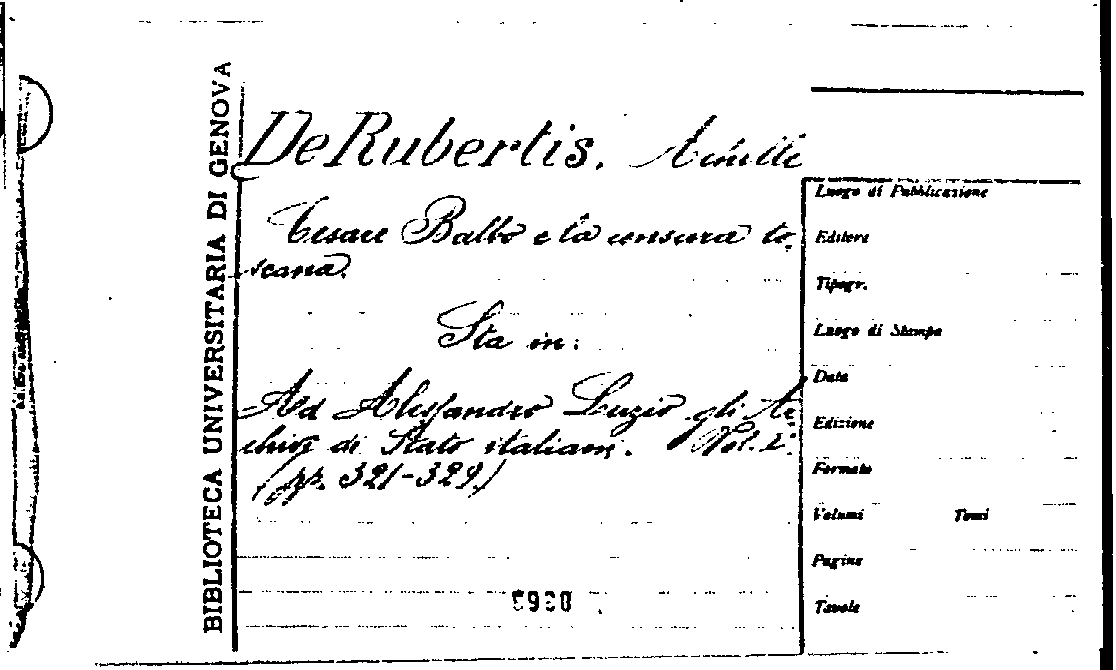 BIBLIOTECA UNIVERSITARIA DI GENOVA
De Rubertis. Achille
Cesare Balbo e la censura to-
scana.
Sta in:
Ad Alessandro Luzio gli Ar-
chivi di Stato italiani. Vol. 2º
(pp. 321-329)
Luogo di Pubblicazione
Editore
Tipogr.
Luogo di Stampa
Data
Edizione
Formato
Volumi Tomi
Pagine
Tavole